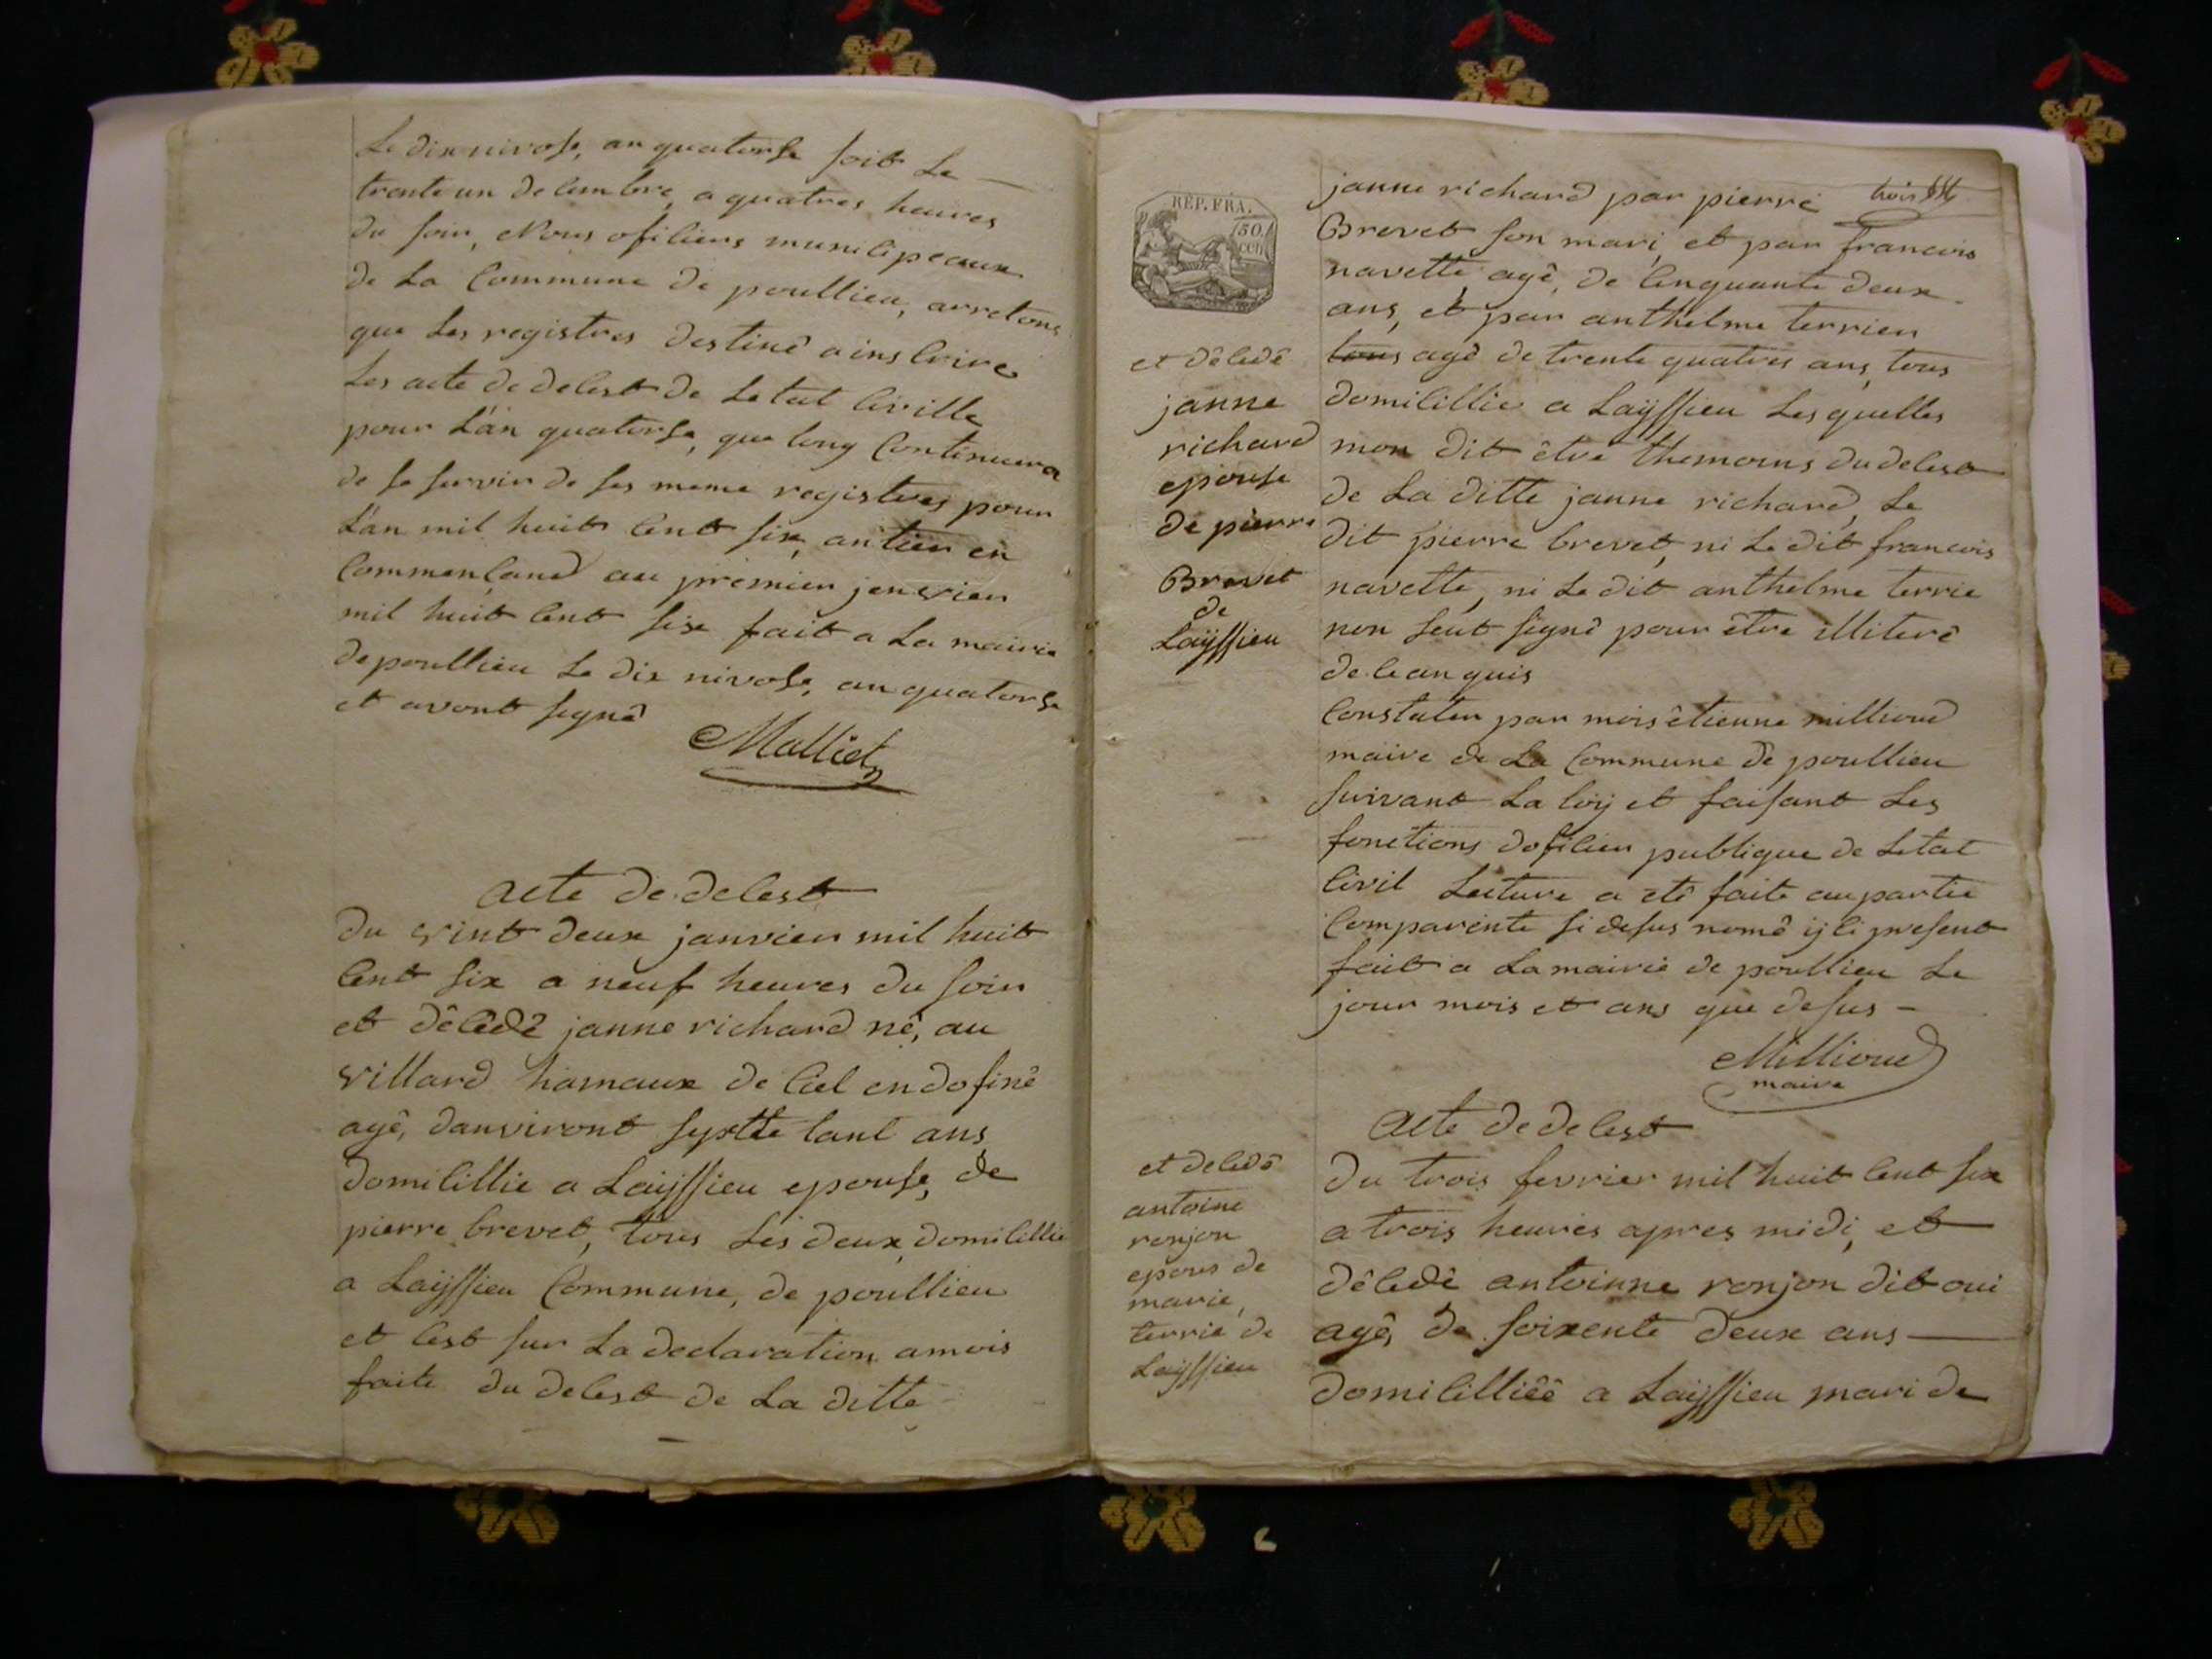 Le dix nivose, an quatorse soit Le
trente un decembre, a quatres heures
du soir, Nous ofiliers municipeaux
de La Commune de poullieu, arretons
que Les registres destiné a inscrire
Les acte de decest de Letat Civille
pour L'an quatorse, que long Continuera
de se servir de ses meme registres pour
L'an mil huit Cent six, antier en
Commençand au premier jenvier
mil huit Cent six fait a La mairie
de poullieu Le dix nivose, an quatorse
et avont signé
Malliet
acte de decest
du vint deux janvier mil huit
Cent six a neuf heures du soir
et décédé janne richard né, au
villard hamaux de Ciel en dofiné
agé, danviront septte tant ans
domicillie a Laÿssieu epouse, de
pierre brevet, tous Les deux domicillie
a Laÿssieu Commune, de poullieu
et Cest sur La declaration amois
faite du decest de La ditte
trois
REP. FRA.
50.
CEN
janne richard par pierre
Brevet son mari et par francois
navette, agé, de Cinquante deux
ans, et par anthelme terrien
tous agé de trente quatres ans, tous
domicillie a Laÿssieu Les quelles
mon dit être themoins du decest
de La ditte janne richard, Le
dit pierre brevet, ni Le dit francois
navette, ni Le dit anthelme terrie
non seut signé pour être illiteré
de ce anquis
Constater par mois êtienne millioud
maire de La Commune de poullieu
suivant La loÿ et faisant Les
fonctions dofilier publique de Letat
Civil Lecture a eté faite au partie
Comparente si desus nomé ÿ ci present
fait a La mairie de poullieu Le
jour mois et ans que desus -
Millioud
maire
et décédé
janne
richard
epouse
de pierre
Brevet
de
Laÿssieu
Acte de decest
du trois fevrier mil huit Cent six
a trois heures apres midi, et
décedé antoinne ronjon dit oui
agé, de soixente deux ans
domicilliéé a Laÿssieu mari de
et decedé
antoine
ronjon
epous de
marie,
terrie de
Laÿssieu